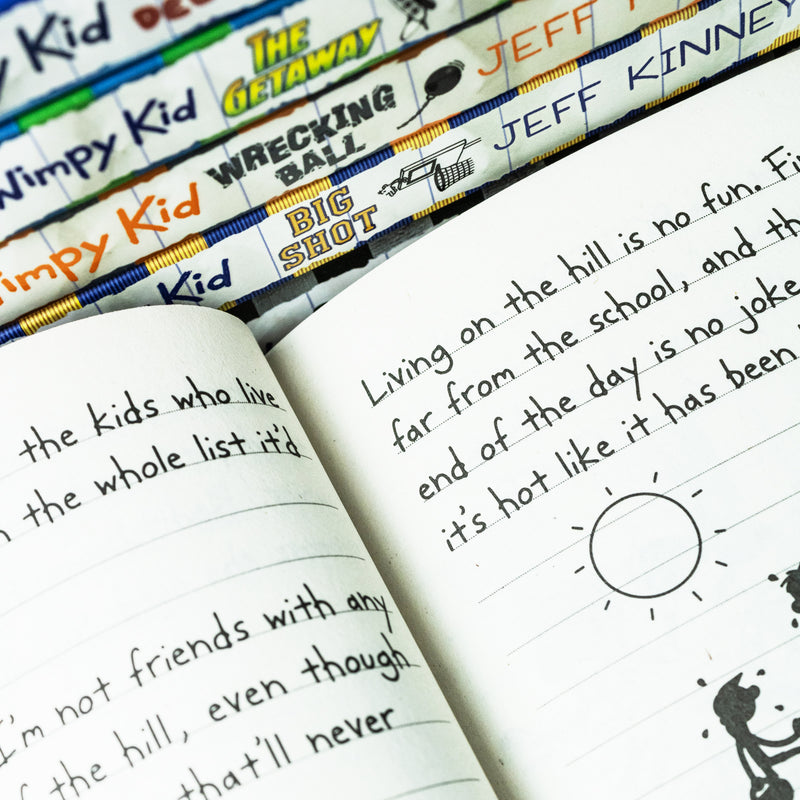 Kid
THE GETAWAY
JEFF
Wimpy Kid
WRECKING BALL
JEFF KINNEY
Wimpy Kid
BIG SHOT
Kid
the kids who live
the whole list it'd
I'm not friends with any
the hill, even though
that'll never
Living on the hill is no fun.
far from the school, and
end of the day is no joke
it's hot like it has been